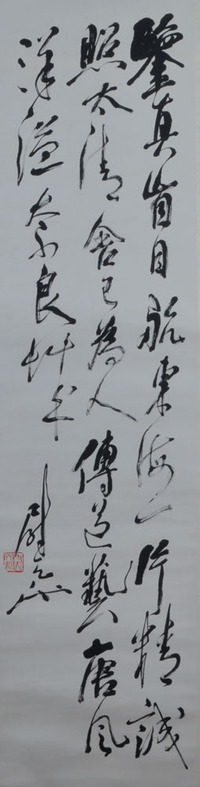 鑒真盲目航東海一片精誠
照太清舍己為人傳道藝唐風
洋溢奈良城
尉天池